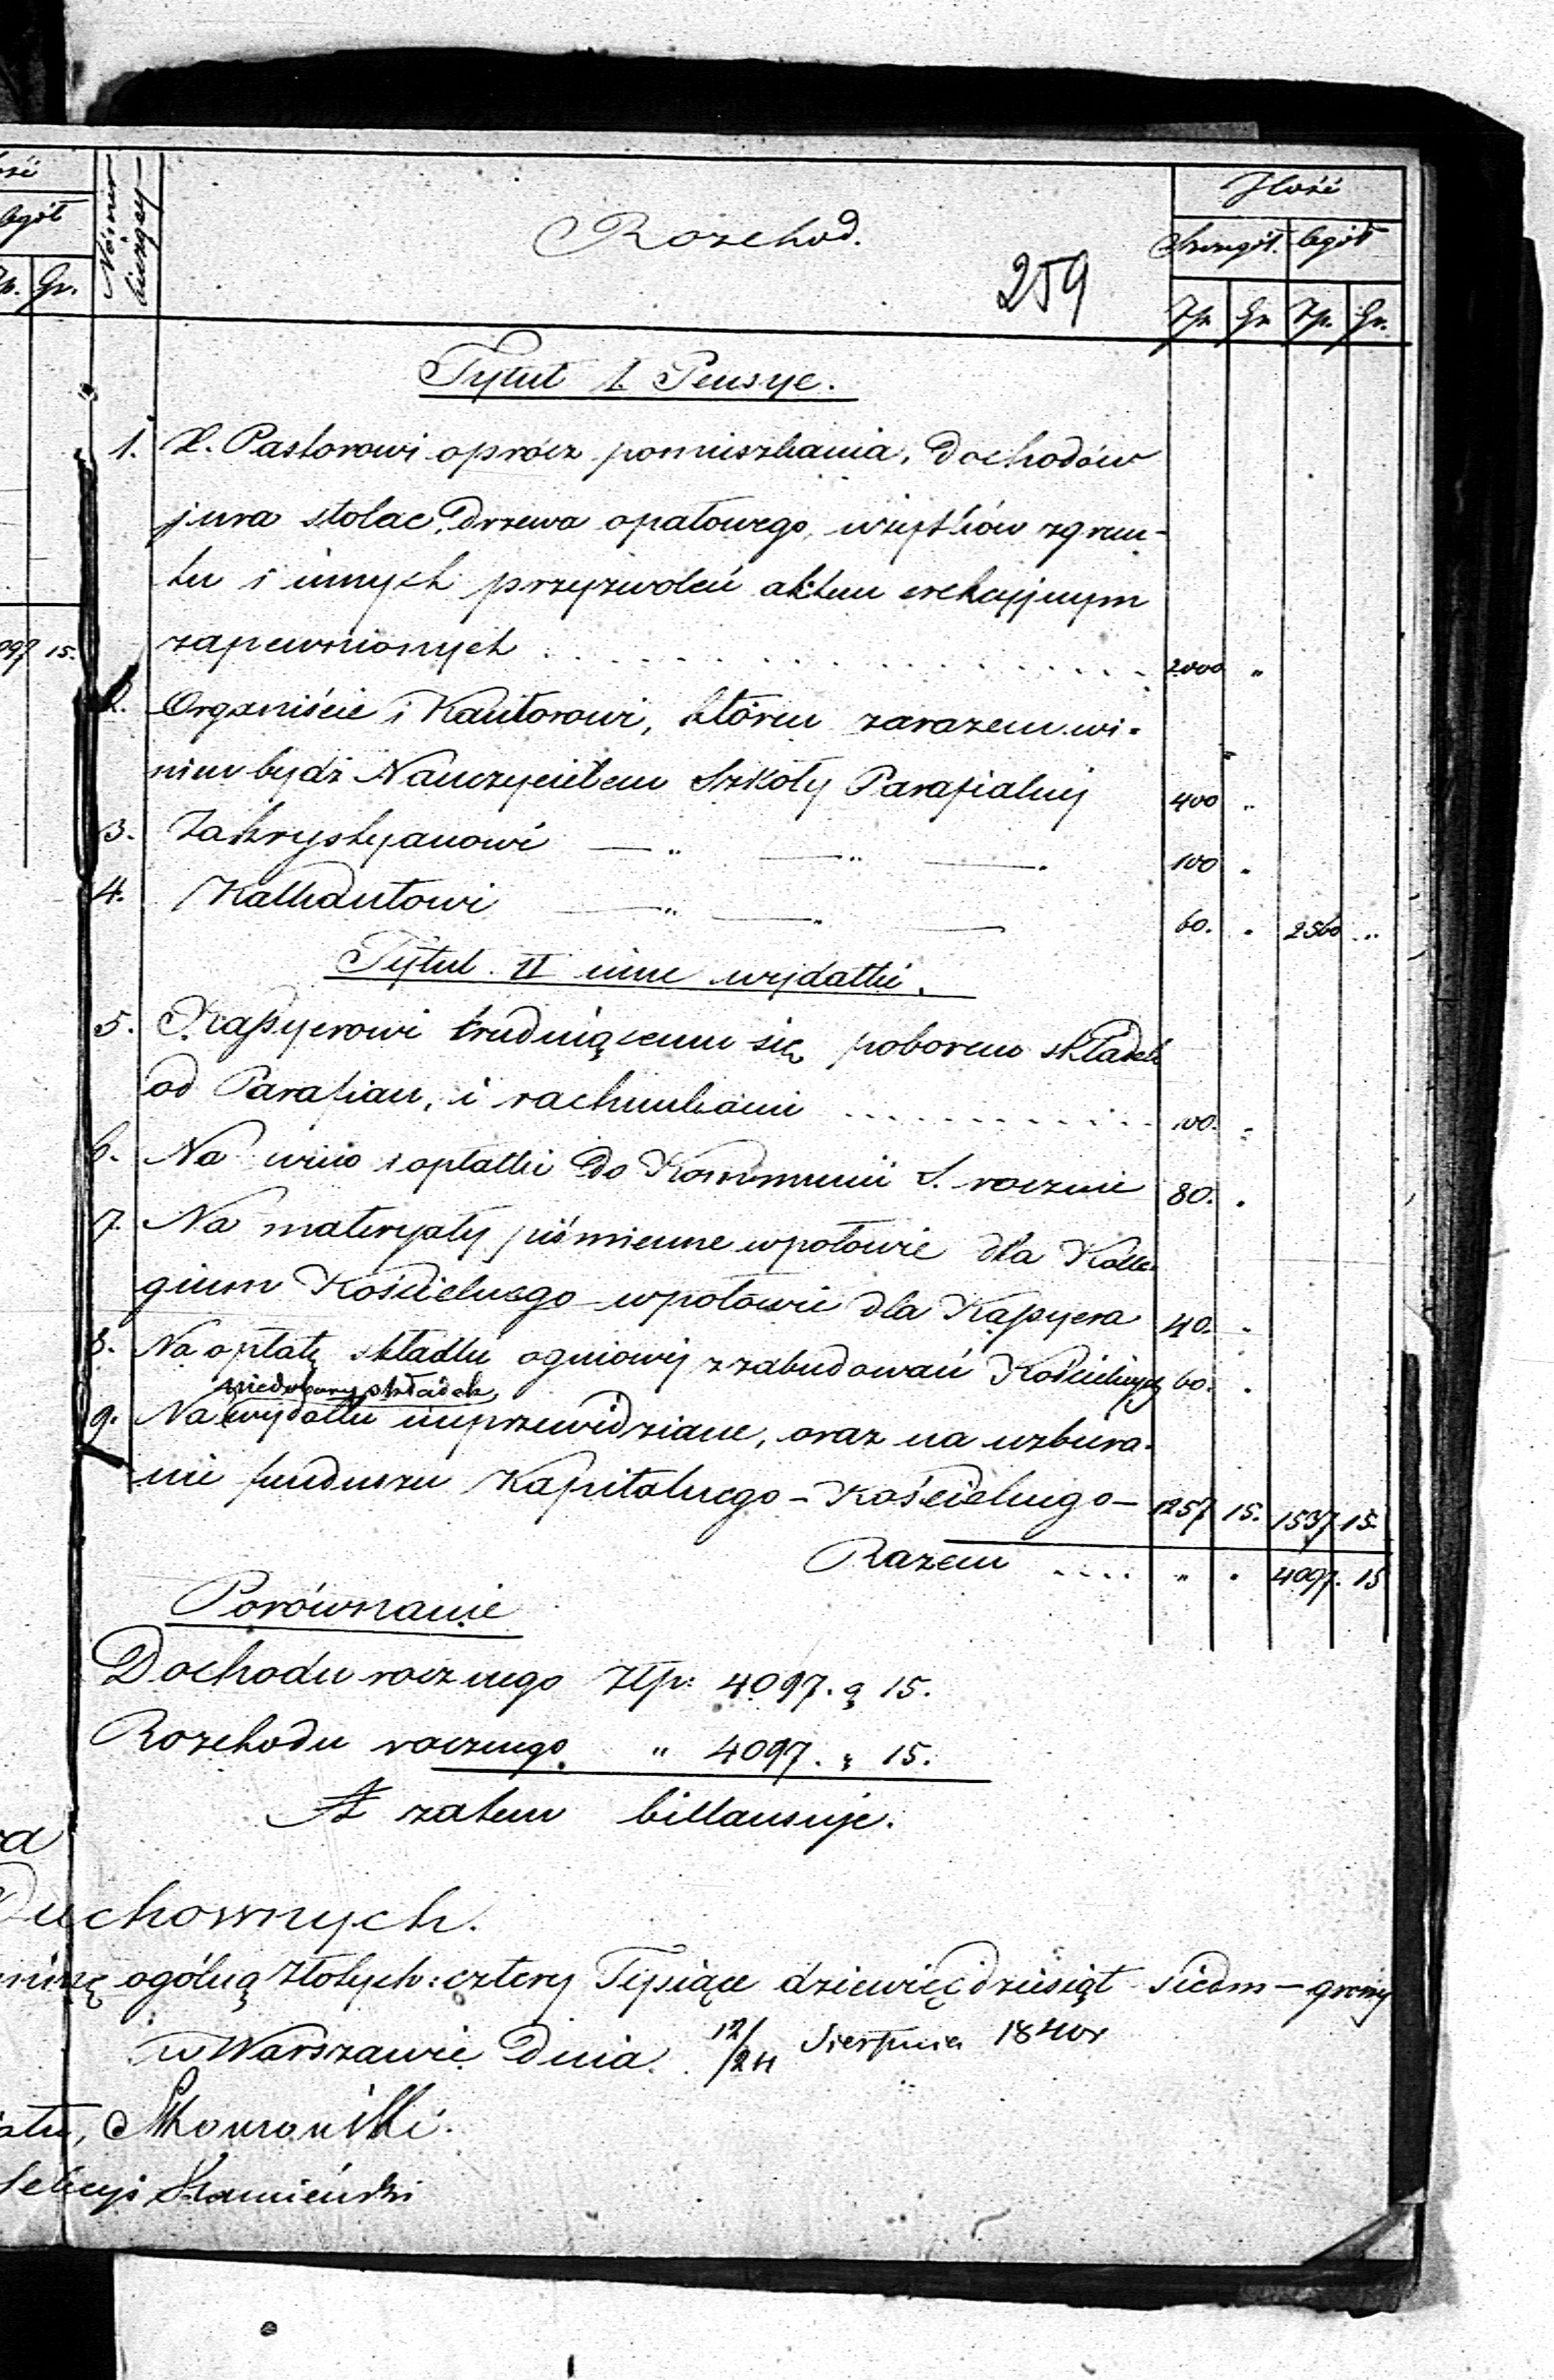 Numer bieżący
Rozchod.
Ilość
szczegół. | ogół
259
Złp. | Gr. | Złp. | Gr.
Gr.
Tytuł I. Pensye.
1. X. Pastorowi oprócz pomieszkania, dochodów
jura stolae, drzewa opałowego, użytków z grun-
tu i innych przyzwoleń aktem erekcyjnym
zapewnionych . . . . . 2000 "
2. Organiście i Kantorowi, który zarazem wi-
nien bydź Nauczycielem Szkoły Parafialnej 400 "
3. Zakrystyanowi — " — " — 100 "
4. Kalkantowi — " — " — 60. " 2560 "
Tytuł II inne wydatki.
5. Kassyerowi trudniącemu się poborem składek
od Parafian, i rachunkami . . . . . 100. "
6. Na wino i opłatki do Kommunii S. rocznie 80. "
7. Na materyały piśmienne w połowie dla Kolle-
gium Kościelnego w połowie dla Kassyera 40. "
8. Na opłatę składki ogniowej z zabudowań Kościelnych 60. "
niedobory składek,
9. Na wydatki nieprzewidziane, oraz na uzbiera-
nie funduszu Kapitalnego - Kościelnego - 1257 15. 1537 15.
097 15.
Razem . . . . " " 4097. 15
Porównanie
Dochodu rocznego Złp: 4097. g 15.
Rozchodu rocznego " 4097. " 15.
A zatem billansuje.
Duchownych.
ogólną złotych: cztery Tysiące dziewięćdziesiąt siedm — groszy
w Warszawie Dnia 12/24 Sierpnia 1840 r
Skowroński.
Sekcyi Kamieński